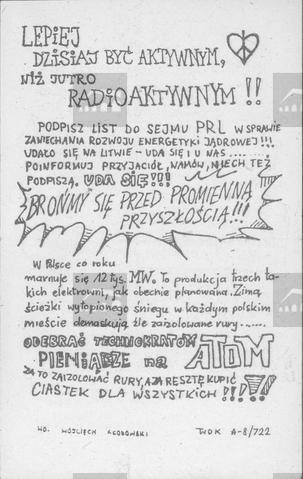 LEPIEJ
DZISIAJ BYĆ AKTYWNYM,
NIŻ JUTRO
RADIOAKTYWNYM !!
PODPISZ LIST DO SEJMU PRL W SPRAWIE
ZANIECHANIA ROZWOJU ENERGETYKI JĄDROWEJ!!!
UDAŁO SIĘ NA LITWIE – UDA SIĘ I U NAS .......
POINFORMUJ PRZYJACIÓŁ, NAMÓW, NIECH TEŻ
PODPISZĄ. UDA SIĘ!!!
BROŃMY SIĘ PRZED PROMIENNĄ
PRZYSZŁOŚCIĄ!!!
W Polsce co roku
marnuje się 12 tys. MW. To produkcja trzech ta-
kich elektrowni, jak obecnie planowana. Zimą
ścieżki wytopionego śniegu w każdym polskim
mieście demaskują źle zaizolowane rury......
ODEBRAĆ TECHNOKRATOM
PIENIĄDZE na ATOM
ZA TO ZAIZOLOWAĆ RURY, A ZA RESZTĘ KUPIĆ
CIASTEK DLA WSZYSTKICH !!!!!
WO. WOJCIECH TWOK A-8/722